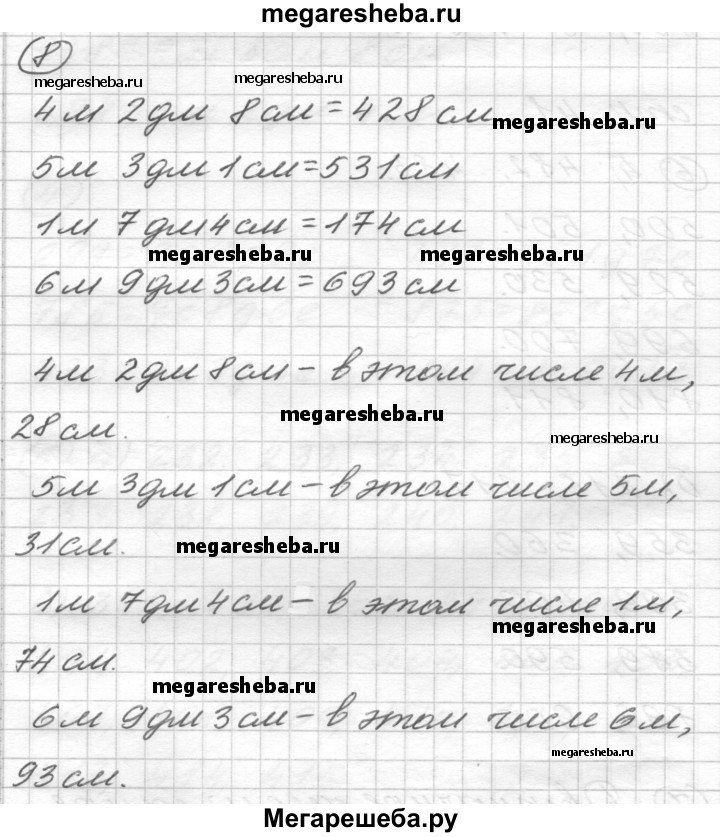 megaresheba.ru
8
megaresheba.ru megaresheba.ru
4м 2дм 8см = 428см
megaresheba.ru
5м 3дм 1см = 531см
1м 7дм 4см = 174см
megaresheba.ru megaresheba.ru
6м 9дм 3см = 693см
4м 2дм 8см – в этом числе 4м,
megaresheba.ru
28см.
megaresheba.ru
5м 3дм 1см – в этом числе 5м,
31см.
megaresheba.ru
1м 7дм 4см – в этом числе 1м,
megaresheba.ru
74см.
megaresheba.ru
6м 9дм 3см – в этом числе 6м,
megaresheba.ru
93см.
Мегарешеба.ру